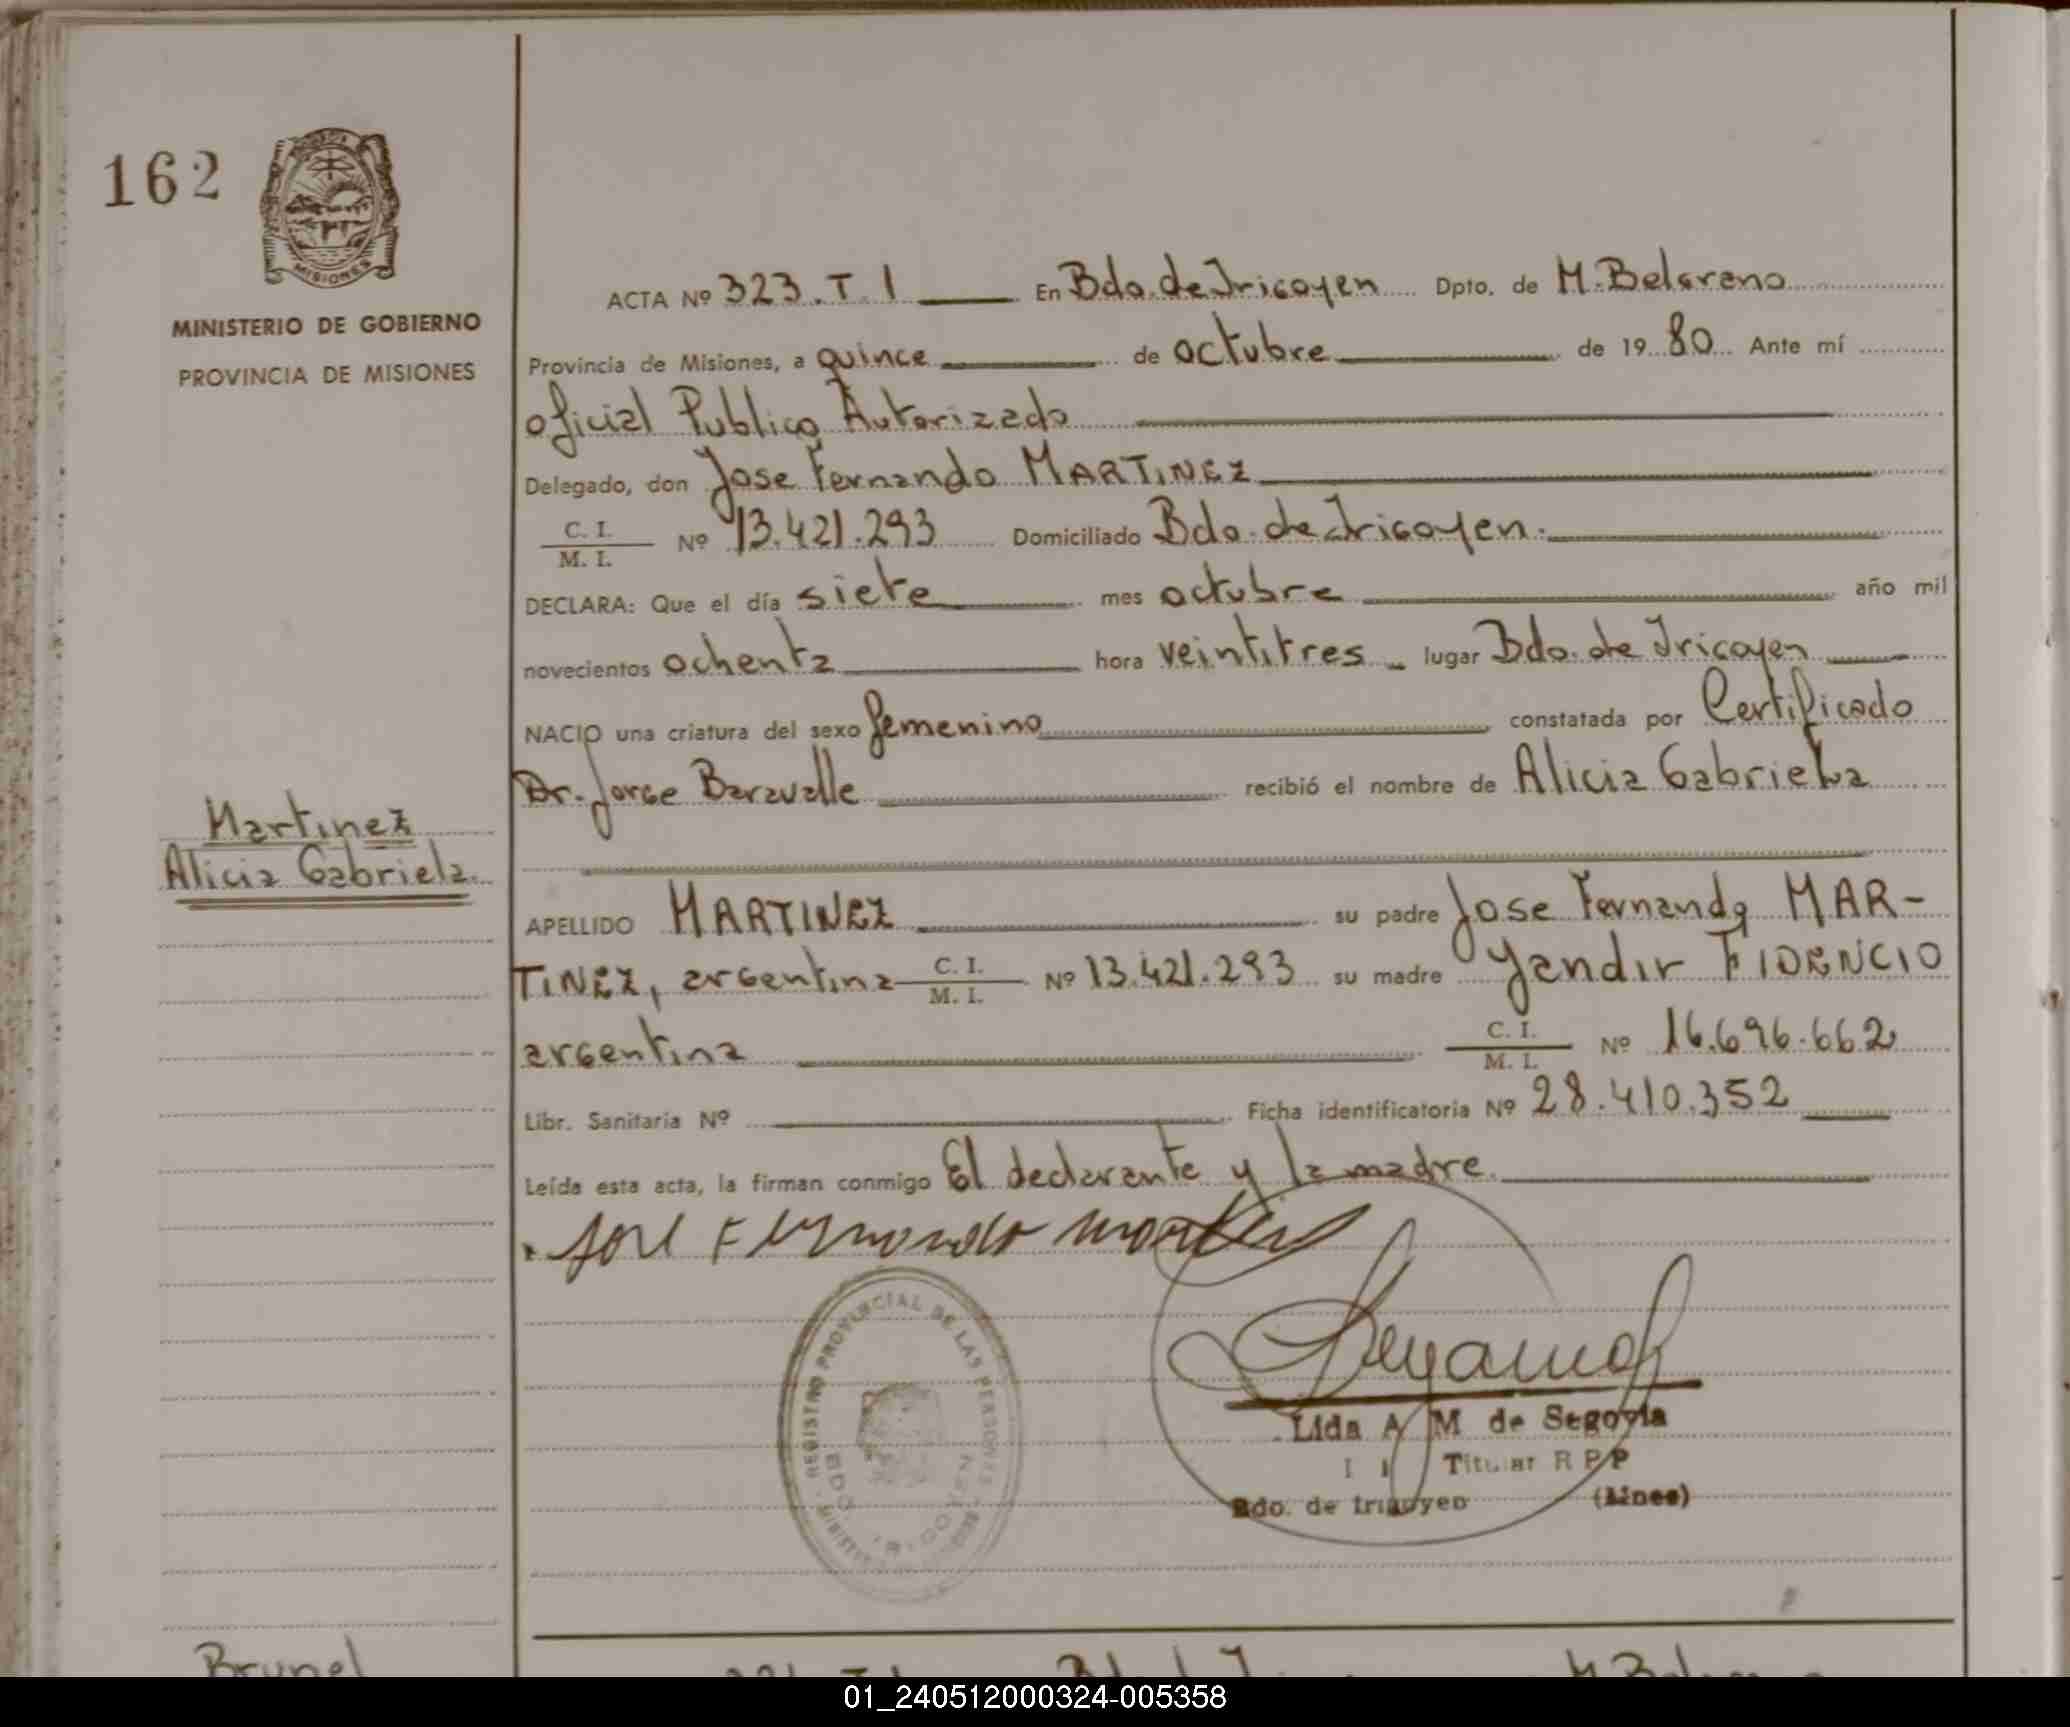 162
MISIONES
MINISTERIO DE GOBIERNO
PROVINCIA DE MISIONES
Martinez
Alicia Gabriela
ACTA Nº 323.T.1 En Bdo. de Irigoyen Dpto. de M. Belgrano
Provincia de Misiones, a quince de octubre de 19 80 Ante mí
oficial Publico Autorizado
Delegado, don Jose Fernando MARTINEZ
C. I. / M. I. Nº 13.421.293 Domiciliado Bdo. de Irigoyen.
DECLARA: Que el día siete mes octubre año mil
novecientos ochenta hora veintitres lugar Bdo. de Irigoyen
NACIO una criatura del sexo femenino constatada por Certificado
Dr. Jorge Baravalle recibió el nombre de Alicia Gabriela
APELLIDO MARTINEZ su padre Jose Fernando MAR-
TINEZ, argentina C. I. / M. I. Nº 13.421.293 su madre Yandir FIDENCIO
argentina C. I. / M. I. Nº 16.696.662
Libr. Sanitaria Nº Ficha identificatoria Nº 28.410.352
Leída esta acta, la firman conmigo El declarante y la madre.
Jose Fernando Martinez
REGISTRO PROVINCIAL DE LAS PERSONAS
Lida A M de Segovia
Titular R P P
Bdo. de Irigoyen (Mnes)
Brunel
01_240512000324-005358